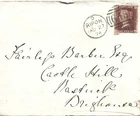 RIPON
Fairless Barber Esq
Castle Hill
Rastrick
Brighouse